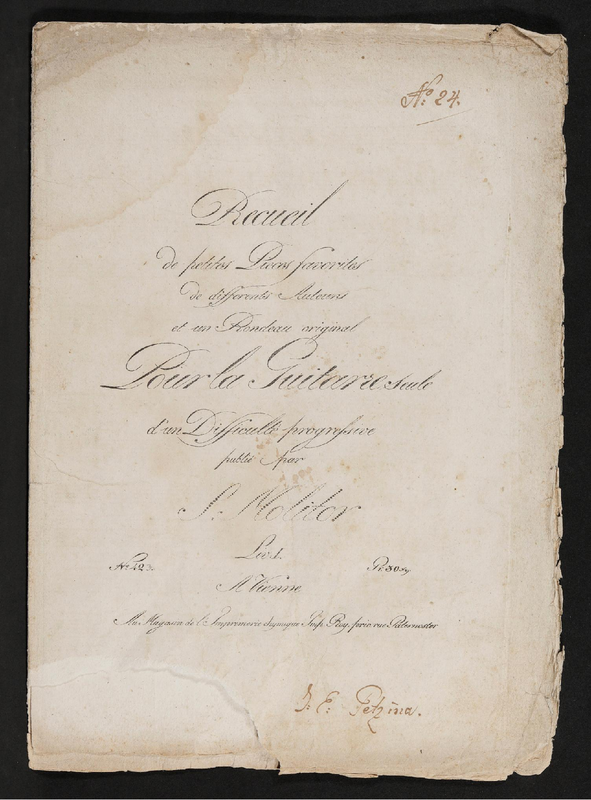 No: 24.
Recueil
de petites Pieces favorites
de differents Auteurs
et un Rondeau original
Pour la Guitarre seule
d'un Difficulté progressive
publié par
S: Molitor
Liv 1.
No 12 Pr 30 xr
A Vienne
Au Magasin de l'Imprimerie chymique Imp. Roy. priv. rue Paternoster
J. E: Petzina.